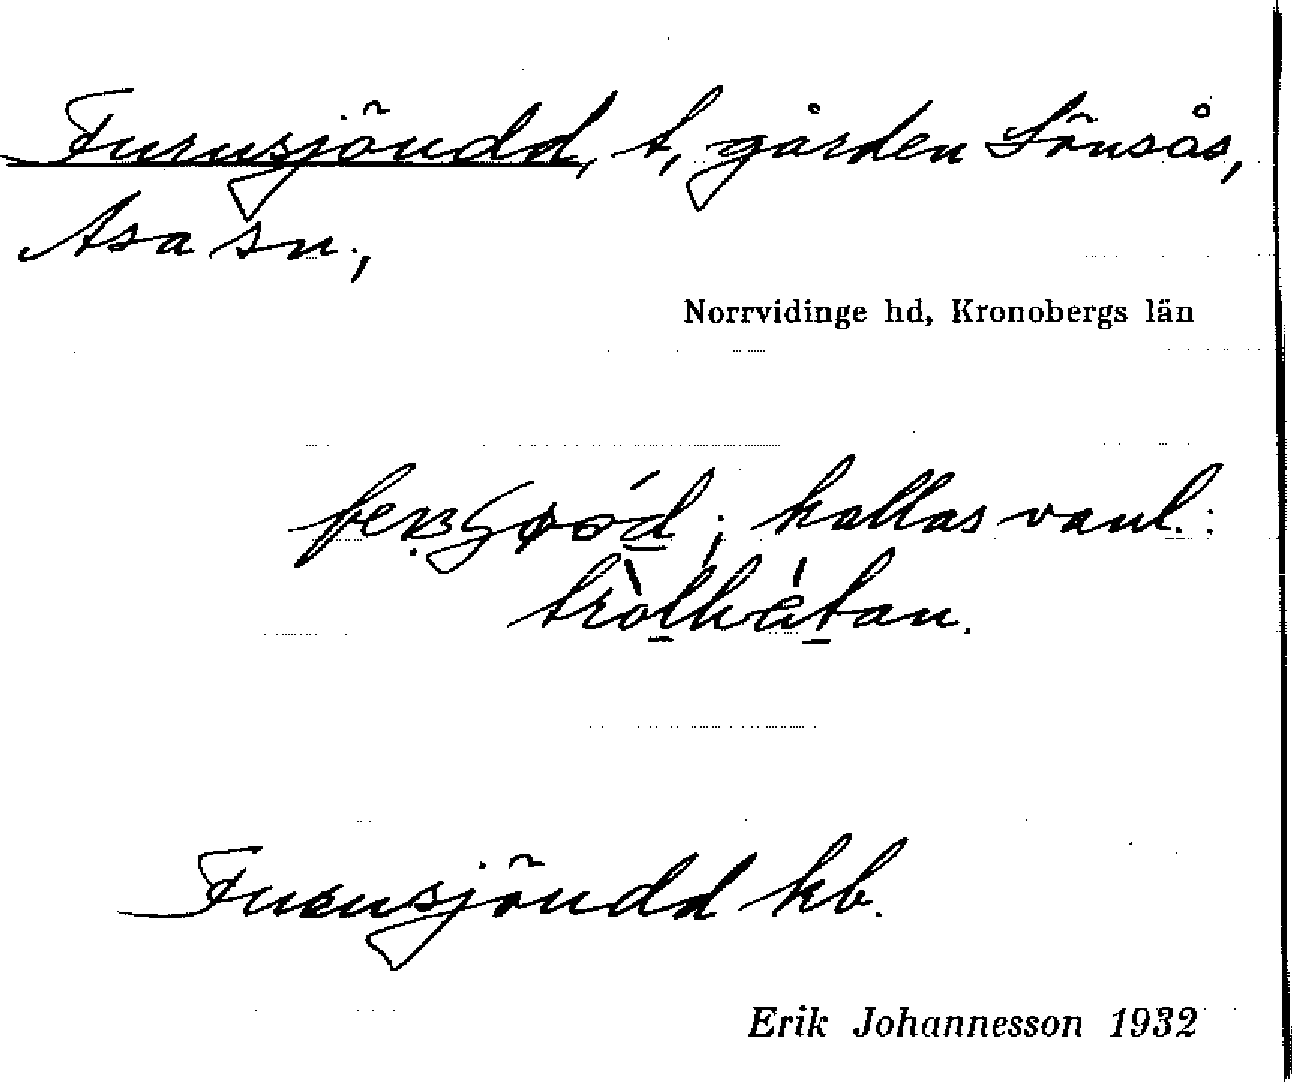 Furusjöudd, t, gården Lönsås,
Asa sn.,
Norrvidinge hd, Kronobergs län
kallas vanl.:
Furusjöudd kb.
Erik Johannesson 1932